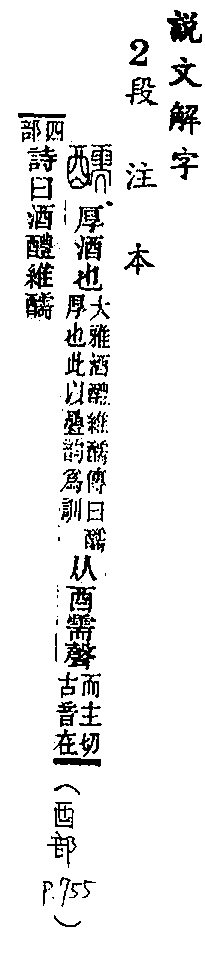 説文解字
2段注本
醹 厚酒也大雅酒醴維醹傳曰醹厚也此以疊韵爲訓从酉需聲而主切古音在（酉部 P.755）
四部詩曰酒醴維醹